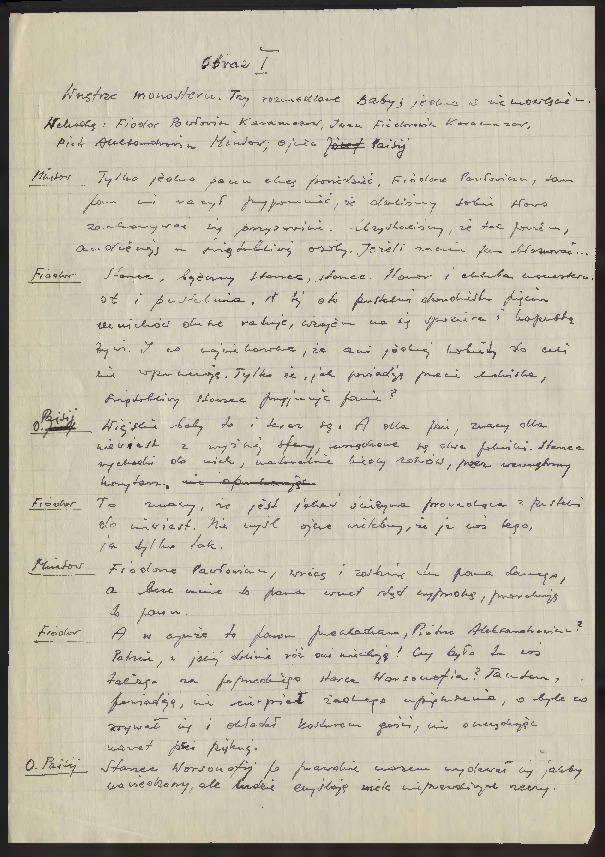 Obraz I
Wnętrze monasteru. Trzy rozmodlone baby; jedna z niemowlęciem.
Wchodzą: Fiodor Pawłowicz Karamazow, Iwan Fiodorowicz Karamazow,
Piotr Aleksandrowicz Miusow, ojciec Józef Paisij
Miusow Tylko jedno panu chcę powiedzieć, Fiodorze Pawłowiczu,
pan mi raczył przypomnieć, że daliśmy sobie słowo
zachowywać się przyzwoicie. że tak powiem,
audiencję u świątobliwej osoby. Jeżeli pan błaznować...
Fiodor Starzec, starzec, starzec. Honor i chluba monasteru.
ot i pustelnia. W tej oto pustelni
duszę ratuje, się i kapustą
żywi. I co najciekawsze, że ani jednej kobiety do celi
nie wpuszczają. Tylko że, jak powiadają
świątobliwy starzec przyjmuje panie?
O. Paisij Wiejskie baby to i teraz są. A dla pań, znaczy dla
niewiast z wyższej sfery, urządzone są dwa pokoiki. Starzec
wychodzi do nich, naturalnie kiedy zdrów, przez wewnętrzny
korytarz.
Fiodor To znaczy, że jest jakaś ścieżyna prowadząca z pustelni
do niewiast. Nie myśl ojcze wielebny, że ja coś tego,
ja tylko tak.
Miusow Fiodorze Pawłowiczu, wrócę i zostawię tu pana samego,
a beze mnie to pana wnet stąd wyproszą, przewiduję
to panu.
Fiodor A w czymże to panu przeszkadzam, Piotrze Aleksandrowiczu?
Patrzcie, w jakiej dolinie róż oni mieszkają! Czy było tu coś
takiego za poprzedniego starca Warsonofia? Tamten,
powiadają, nie cierpiał żadnego upiększenia, a byle co
zrywał się i okładał kosturem gości, nie oszczędzając
nawet płci pięknej.
O. Paisij Starzec Warsonofij po prawdzie czasem wydawał się jakby
nawiedzony, ale ludzie zmyślają wiele nieprawdziwych rzeczy.